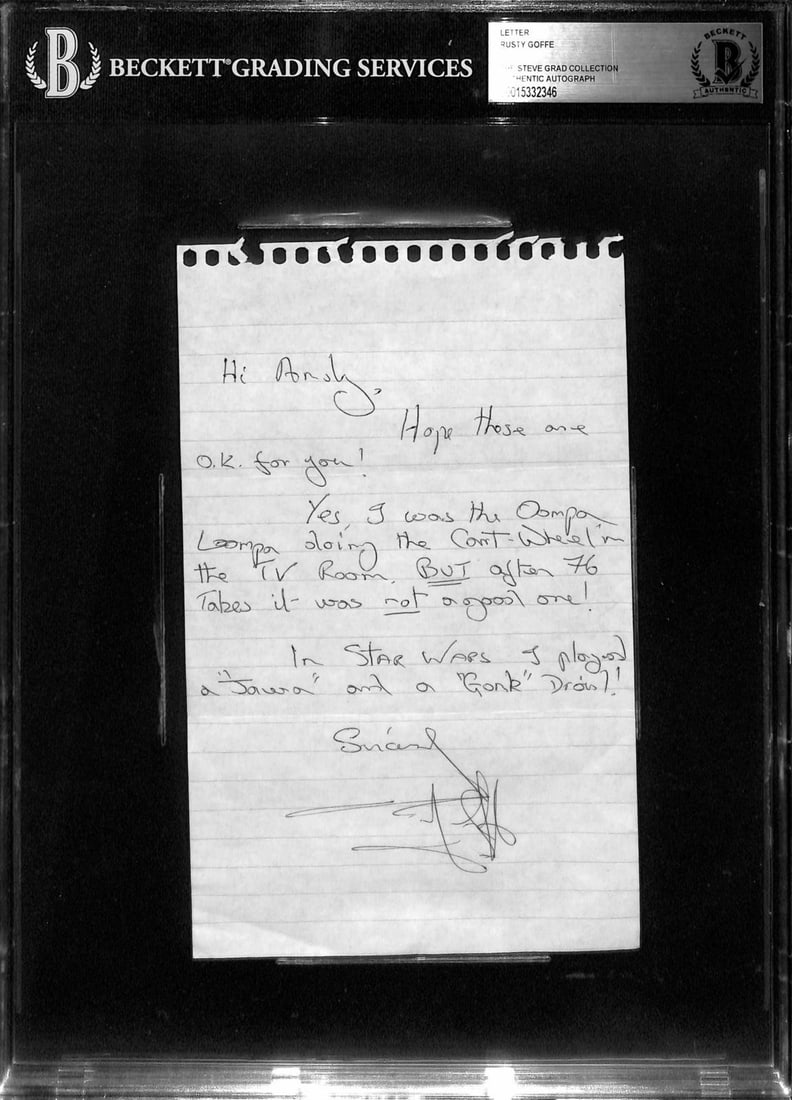 B BECKETT® GRADING SERVICES
LETTER
RUSTY GOFFE
STEVE GRAD COLLECTION
HENTIC AUTOGRAPH
0015332346
BECKETT
B
AUTHENTIC
Hi Andy,
Hope these are
O.K. for you!
Yes, I was the Oompa
Loompa doing the Cart-Wheel in
the TV Room. BUT after 76
Takes it was not a good one!
In STAR WARS I played
a "Jawa" and a "Gonk" Droid!